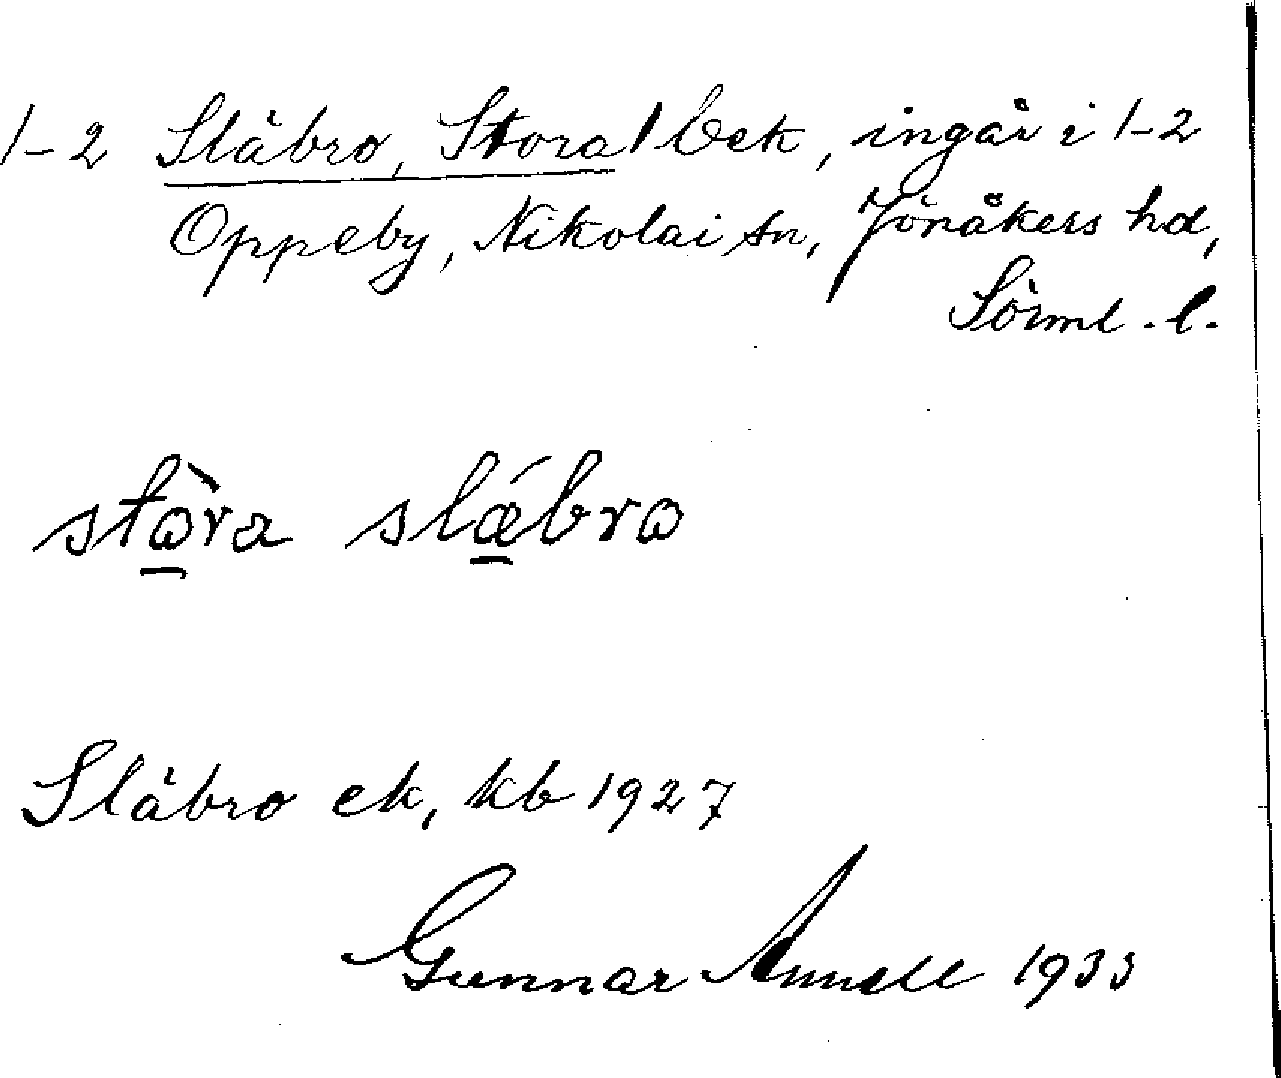 1-2 Släbro, Stora / bek, ingår i 1-2
Oppeby, Nikolai sn, Jönåkers hd,
Sörml. l.
stò̠ra slǽ̠bro
Släbro ek, kb 1927
Gunnar Annell 1933